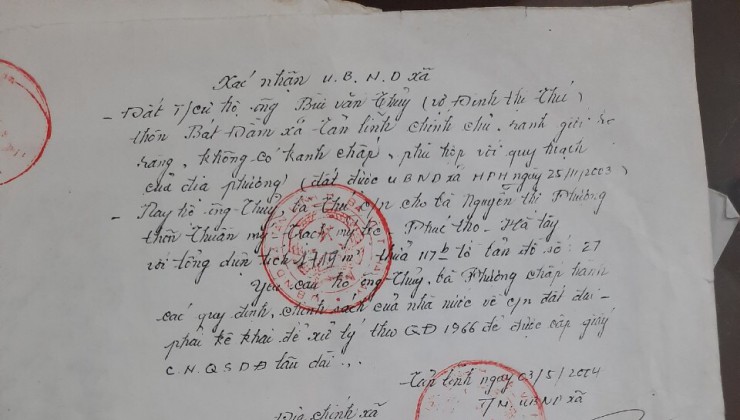 Xác nhận U.B.N.D xã
- Đất T/cư hộ ông Bùi Văn Thủy (vợ Đinh Thị Thú)
thôn Bát Đầm xã Tản lĩnh chính chủ, ranh giới rõ
ràng, không có tranh chấp, phù hợp với quy hoạch
của địa phương (đất được UBND xã HPH ngày 25/11/2003)
- Nay hộ ông Thủy, bà Thú C/N cho bà Nguyễn Thị Phương
thôn Thuần mỹ - Trạch mỹ lộc - Phúc thọ - Hà tây
với tổng diện tích m² thửa 117b tờ bản đồ số: 27
Yêu cầu hộ ông Thủy, bà Phương chấp hành
các quy định, chính sách của nhà nước về C/N đất đai -
phải kê khai để xử lý theo QĐ 1966 để được cấp giấy
C.N.QSDĐ lâu dài...
Tản lĩnh ngày 03/5/2004
Địa chính xã T/M. UBND xã